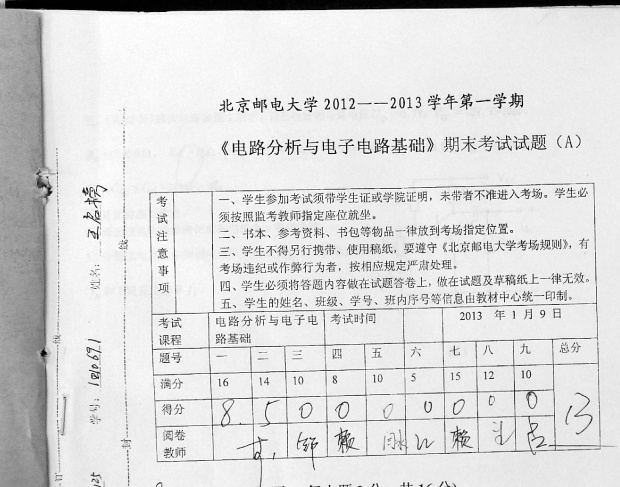 北京邮电大学 2012——2013 学年第一学期
《电路分析与电子电路基础》期末考试试题（A）
考试注意事项
一、学生参加考试须带学生证或学院证明，未带者不准进入考场。学生必
须按照监考教师指定座位就坐。
二、书本、参考资料、书包等物品一律放到考场指定位置。
三、学生不得另行携带、使用稿纸，要遵守《北京邮电大学考场规则》，有
考场违纪或作弊行为者，按相应规定严肃处理。
四、学生必须将答题内容做在试题答卷上，做在试题及草稿纸上一律无效。
五、学生的姓名、班级、学号、班内序号等信息由教材中心统一印制。
考试课程 电路分析与电子电路基础 考试时间 2013 年 1 月 9 日
题号 一 二 三 四 五 六 七 八 九 总分
满分 16 14 10 8 10 5 15 12 10
得分 8. 5 0 0 0 0 0 0 0 13
阅卷教师 郭 赖 江 赖
姓名：
学号：